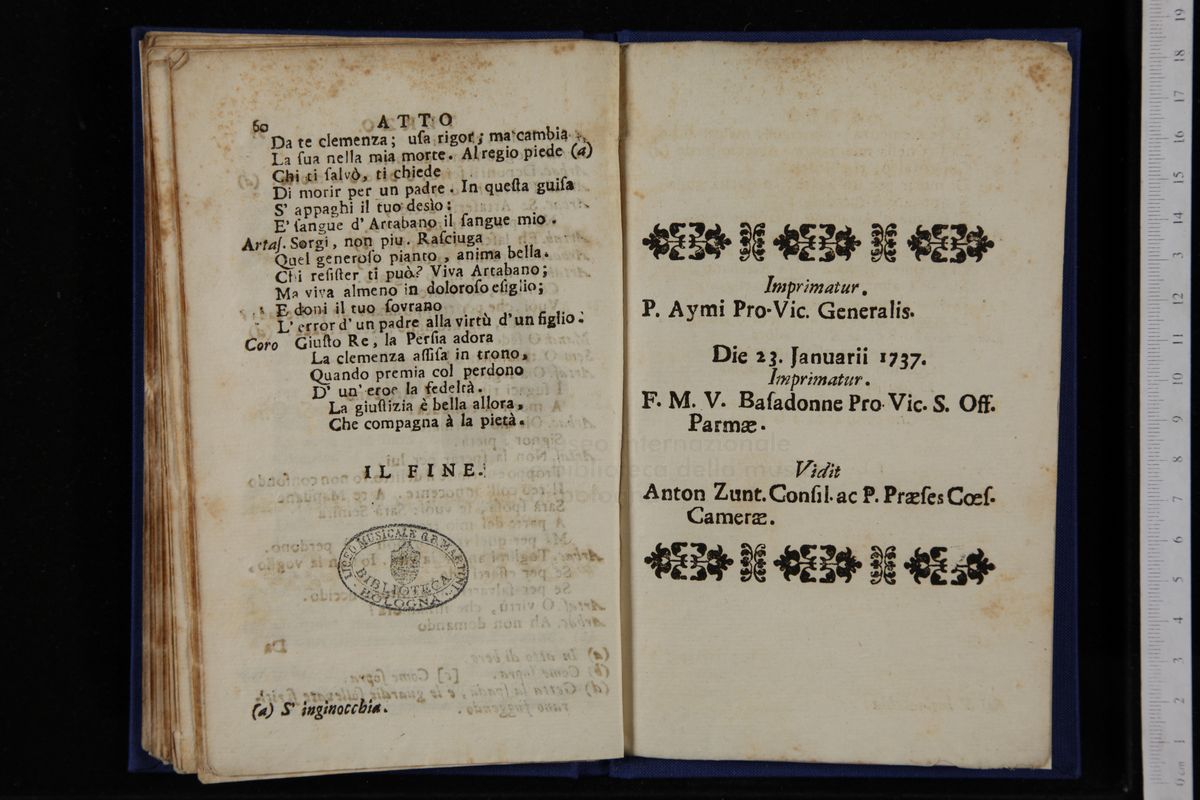 60 ATTO
Da te clemenza; uſa rigor; ma cambia
La ſua nella mia morte. Al regio piede (a)
Chi ti ſalvò, ti chiede
Di morir per un padre. In queſta guiſa
S' appaghi il tuo desìo:
E' ſangue d' Artabano il ſangue mio.
Artaſ. Sorgi, non piu. Raſciuga
Quel generoſo pianto, anima bella.
Chi reſiſter ti può? Viva Artabano;
Ma viva almeno in doloroſo eſiglio;
E doni il tuo ſovrano
L' error d' un padre alla virtù d' un figlio.
Coro Giuſto Re, la Perſia adora
La clemenza aſſiſa in trono,
Quando premia col perdono
D' un' eroe la fedeltà.
La giuſtizia è bella allora,
Che compagna à la pietà.
IL FINE.
LICEO MUSICALE G.B. MARTINI
BIBLIOTECA
BOLOGNA
(a) S' inginocchia.
Imprimatur.
P. Aymi Pro-Vic. Generalis.
Die 23. Januarii 1737.
Imprimatur.
F. M. V. Baſadonne Pro-Vic. S. Off.
Parmæ.
Vidit
Anton Zunt. Conſil. ac P. Præſes Cœſ.
Cameræ.
museo internazionale
biblioteca della musica
0 cm 1 2 3 4 5 6 7 8 9 10 11 12 13 14 15 16 17 18 19